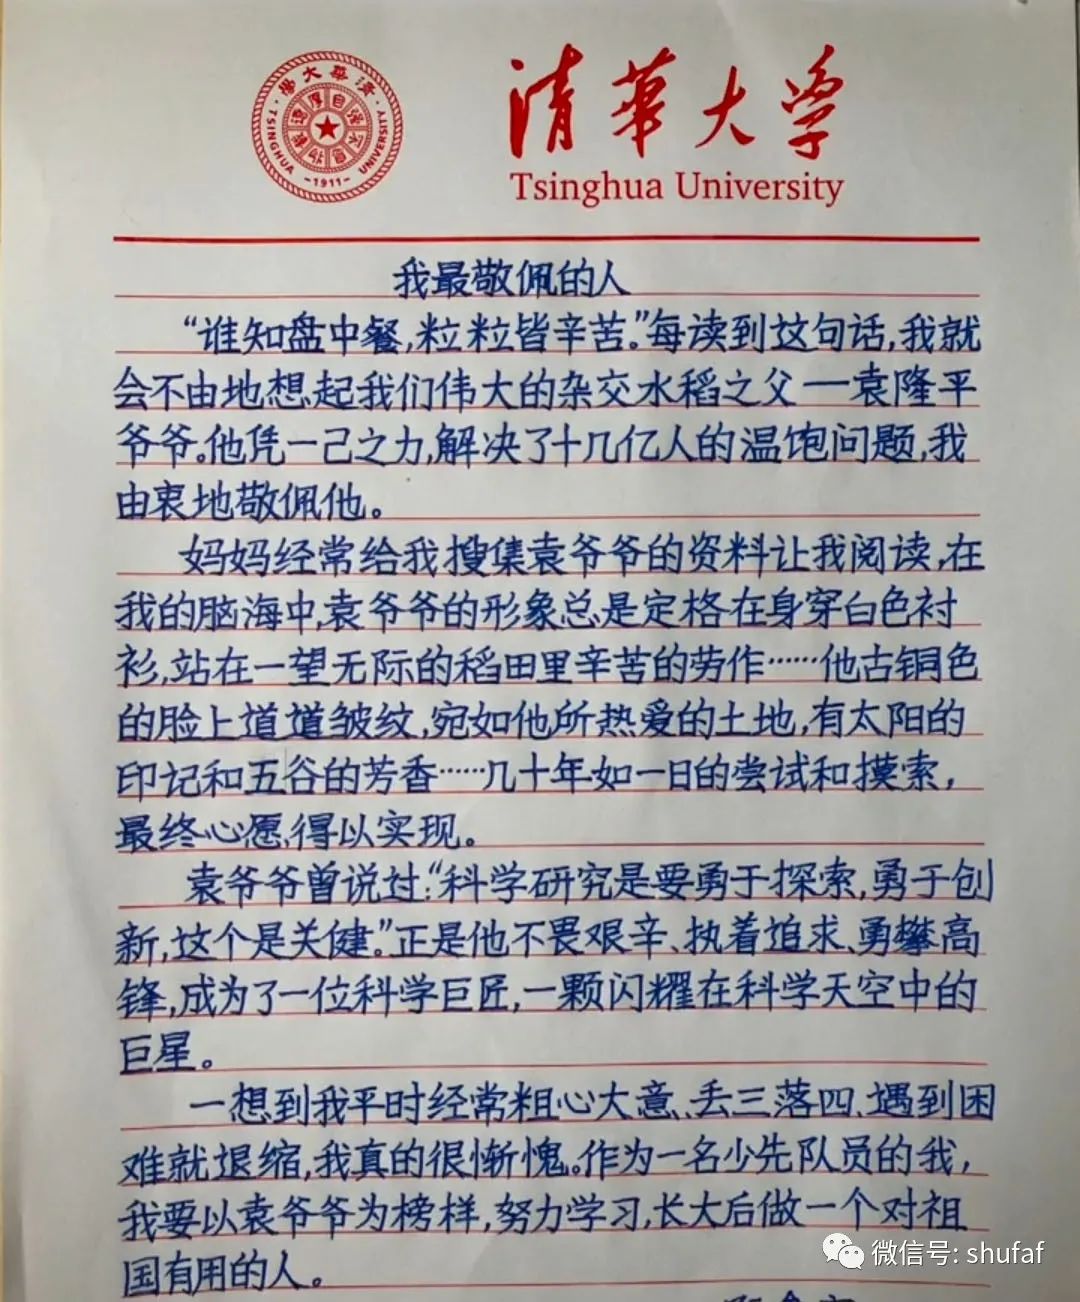 清華大学
Tsinghua University
清華大學
TSINGHUA UNIVERSITY
-1911-
我最敬佩的人
“谁知盘中餐,粒粒皆辛苦。”每读到这句话,我就
会不由地想起我们伟大的杂交水稻之父——袁隆平
爷爷。他凭一己之力,解决了十几亿人的温饱问题,我
由衷地敬佩他。
妈妈经常给我搜集袁爷爷的资料让我阅读,在
我的脑海中,袁爷爷的形象总是定格在身穿白色衬
衫,站在一望无际的稻田里辛苦的劳作……他古铜色
的脸上道道皱纹,宛如他所热爱的土地,有太阳的
印记和五谷的芳香……几十年如一日的尝试和摸索,
最终心愿得以实现。
袁爷爷曾说过:“科学研究是要勇于探索,勇于创
新,这个是关健。”正是他不畏艰辛、执着追求、勇攀高
锋,成为了一位科学巨匠,一颗闪耀在科学天空中的
巨星。
一想到我平时经常粗心大意、丢三落四、遇到困
难就退缩,我真的很惭愧。作为一名少先队员的我,
我要以袁爷爷为榜样,努力学习,长大后做一个对祖
国有用的人。
微信号: shufaf